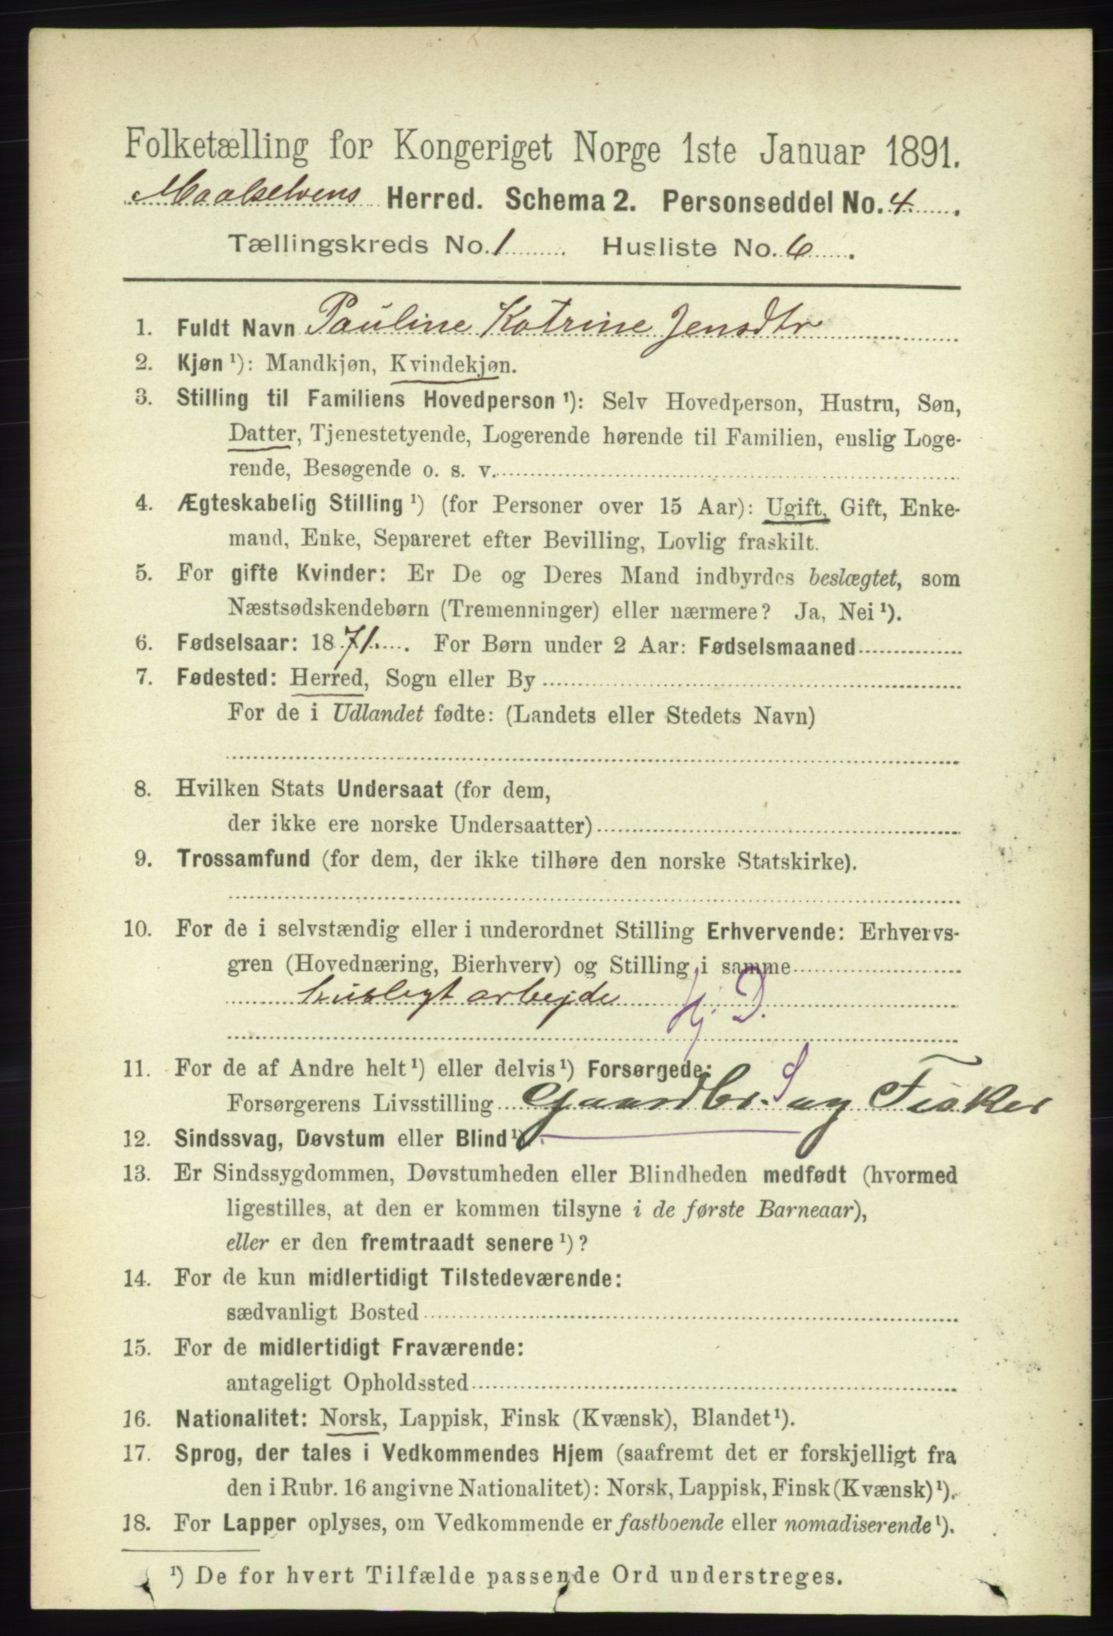 Folketælling for Kongeriget Norge 1ste Januar 1891.
Maalselvens Herred. Schema 2. Personseddel No. 4.
Tællingskreds No. 1. Husliste No. 6.
1. Fuldt Navn Pauline Katrine Jensdtr
2. Kjøn ¹): Mandkjøn, Kvindekjøn.
3. Stilling til Familiens Hovedperson ¹): Selv Hovedperson, Hustru, Søn,
Datter, Tjenestetyende, Logerende hørende til Familien, enslig Loge-
rende, Besøgende o. s. v.
4. Ægteskabelig Stilling ¹) (for Personer over 15 Aar): Ugift, Gift, Enke-
mand, Enke, Separeret efter Bevilling, Lovlig fraskilt.
5. For gifte Kvinder: Er De og Deres Mand indbyrdes beslægtet, som
Næstsødskendebørn (Tremenninger) eller nærmere? Ja, Nei ¹).
6. Fødselsaar: 1871. For Børn under 2 Aar: Fødselsmaaned
7. Fødested: Herred, Sogn eller By
For de i Udlandet fødte: (Landets eller Stedets Navn)
8. Hvilken Stats Undersaat (for dem,
der ikke ere norske Undersaatter)
9. Trossamfund (for dem, der ikke tilhøre den norske Statskirke).
10. For de i selvstændig eller i underordnet Stilling Erhvervende: Erhvervs-
gren (Hovednæring, Bierhverv) og Stilling i samme
husligt arbejde Hj. D.
11. For de af Andre helt ¹) eller delvis ¹) Forsørgede:
Forsørgerens Livsstilling Gaardbr. S og Fisker
12. Sindssvag, Døvstum eller Blind ¹).
13. Er Sindssygdommen, Døvstumheden eller Blindheden medfødt (hvormed
ligestilles, at den er kommen tilsyne i de første Barneaar),
eller er den fremtraadt senere ¹)?
14. For de kun midlertidigt Tilstedeværende:
sædvanligt Bosted
15. For de midlertidigt Fraværende:
antageligt Opholdssted
16. Nationalitet: Norsk, Lappisk, Finsk (Kvænsk), Blandet ¹).
17. Sprog, der tales i Vedkommendes Hjem (saafremt det er forskjelligt fra
den i Rubr. 16 angivne Nationalitet): Norsk, Lappisk, Finsk (Kvænsk) ¹).
18. For Lapper oplyses, om Vedkommende er fastboende eller nomadiserende ¹).
¹) De for hvert Tilfælde passende Ord understreges.